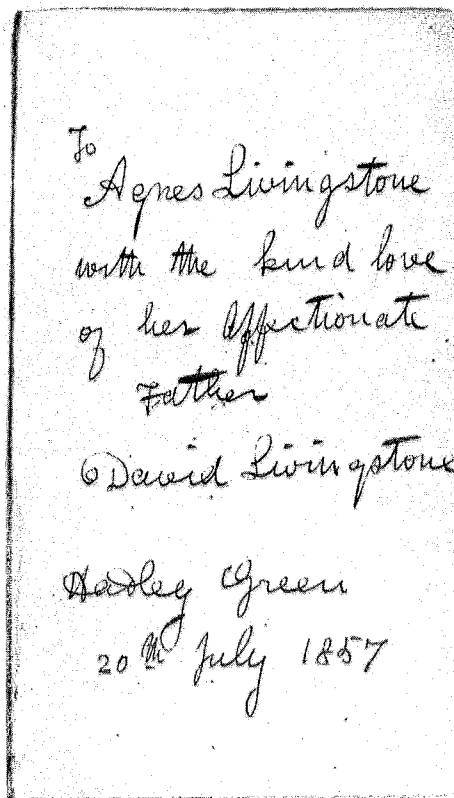 To
Agnes Livingstone
with the kind love
of her affectionate
Father
David Livingstone
Hadley Green
20th July 1857